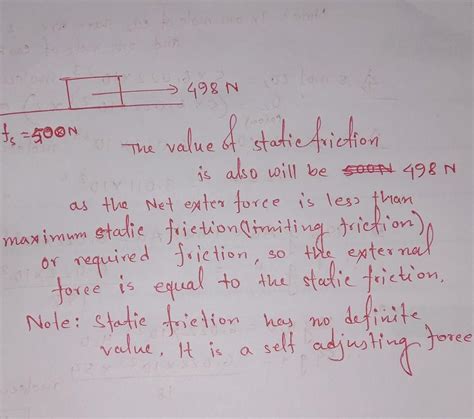 498 N
fs = 500 N
The value of static friction
is also will be 500N 498 N
as the Net exter force is less than
maximum static friction (limiting friction)
or required friction, so the external
force is equal to the static friction.
Note: Static friction has no definite
value. It is a self adjusting force